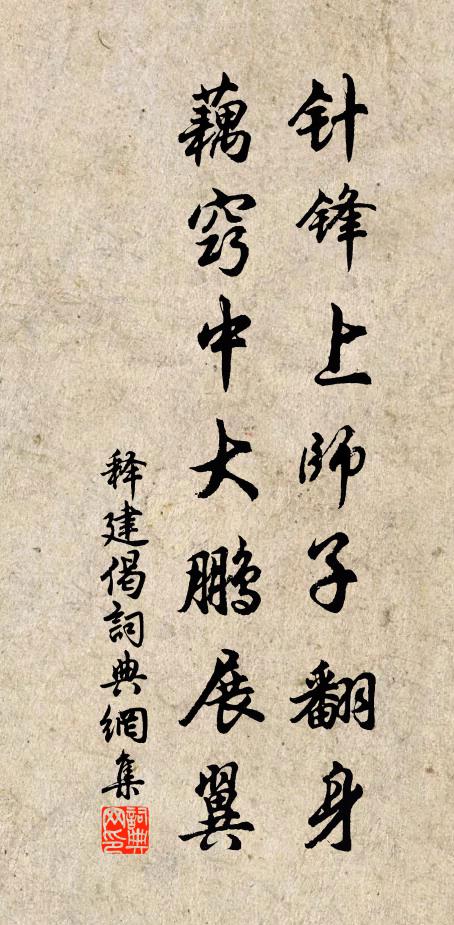 针锋上師子翻身
藕窍中大鹏展翼
释建偈詞典網集
詞典网印